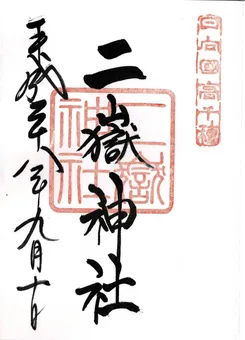 日向國高千穂
二嶽神社
二嶽神社
平成二十八年九月十日